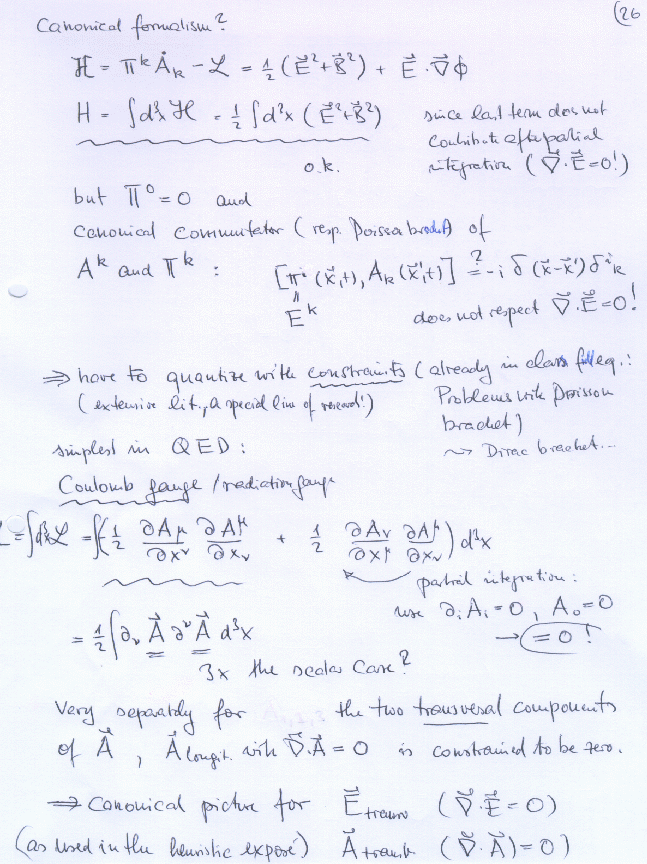 (26
Canonical formalism?
ℋ = Π^k Ȧ_k − ℒ = ½ (E⃗² + B⃗²) + E⃗ · ∇⃗ϕ
H = ∫d³x ℋ = ½ ∫d³x (E⃗² + B⃗²)
since last term does not
contribute after partial
integration (∇⃗ · E⃗ = 0!)
o.k.
but Π⁰ = 0 and
canonical commutator (resp. Poisson bracket) of
A^k and Π^k : [π^i (x⃗,t), A_k (x⃗',t)] ≟ −i δ (x⃗−x⃗') δ^i_k
E^k
does not respect ∇⃗ · E⃗ = 0!
⇒ have to quantize with constraints (already in class. field eq.:
(extensive lit., a special line of research!)
Problems with Poisson
bracket)
⇝ Dirac bracket...
simplest in QED :
Coulomb gauge / radiation gauge
L = ∫d³x ℒ = ∫(−½ ∂A_μ/∂x^ν ∂A^μ/∂x_ν + ½ ∂A_ν/∂x^μ ∂A^μ/∂x_ν) d³x
partial integration :
use ∂_i A_i = 0 , A_0 = 0
→ = 0 !
= ½ ∫ ∂_ν A⃗ ∂^ν A⃗ d³x
3x the scalar case?
Very separately for the two transversal components
of A⃗ , A⃗ longit. with ∇⃗.A⃗ = 0 is constrained to be zero.
⇒ Canonical picture for E⃗ transv (∇⃗ · E⃗ = 0)
(as used in the heuristic exposé) A⃗ transv (∇⃗ · A⃗) = 0)